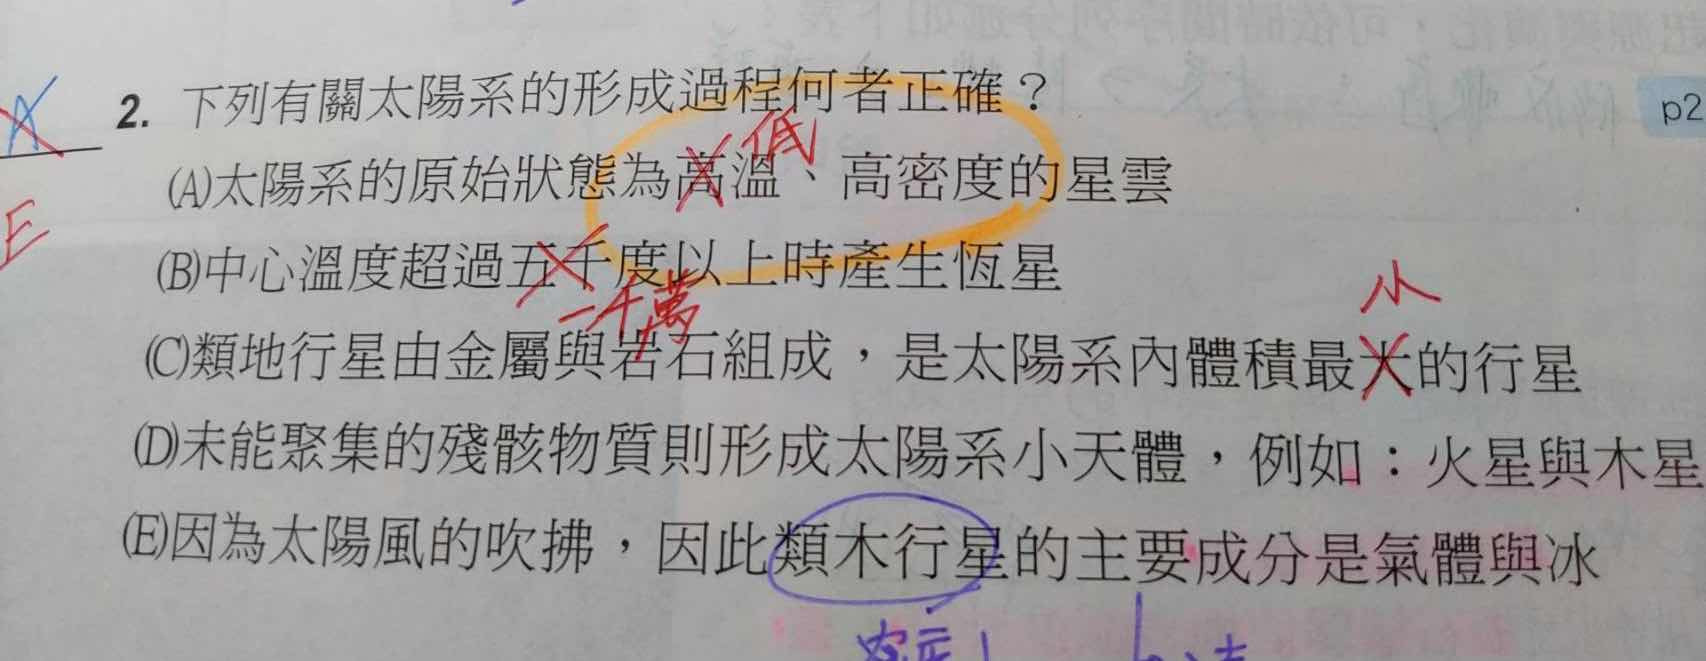 A
2. 下列有關太陽系的形成過程何者正確？
p2
低
(A)太陽系的原始狀態為高溫、高密度的星雲
E
(B)中心溫度超過五千度以上時產生恆星
一千萬
小
(C)類地行星由金屬與岩石組成，是太陽系內體積最大的行星
(D)未能聚集的殘骸物質則形成太陽系小天體，例如：火星與木星
(E)因為太陽風的吹拂，因此類木行星的主要成分是氣體與冰